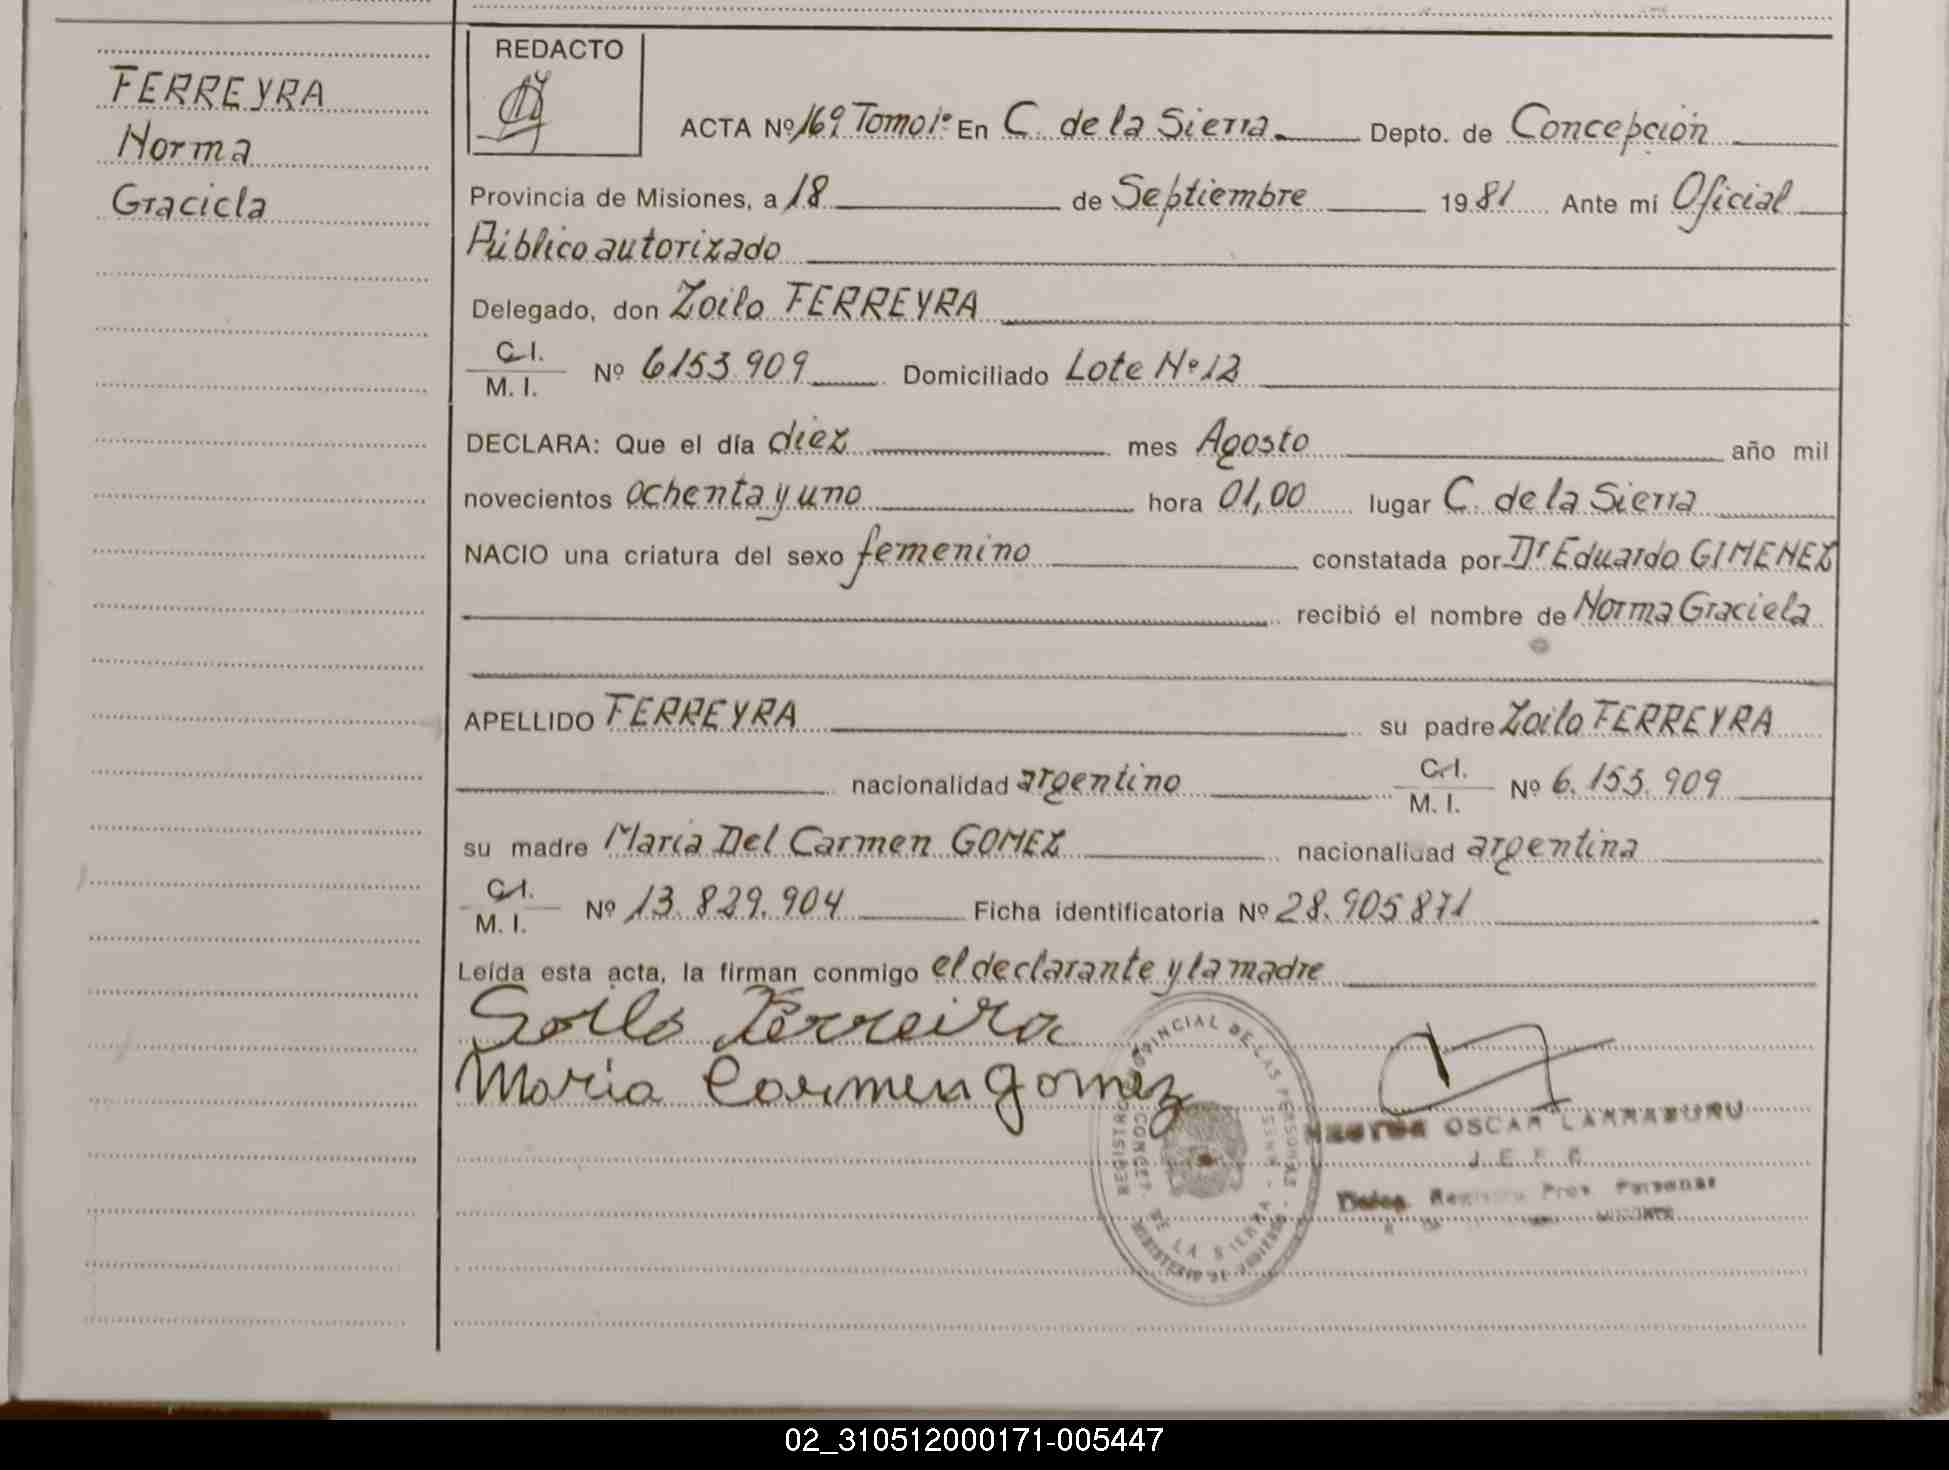 FERREYRA
Norma
Graciela
REDACTO
ACTA Nº 169 Tomo 1º En C. de la Sierra Depto. de Concepción
Provincia de Misiones, a 18 de Septiembre 1981 Ante mí Oficial
Público autorizado
Delegado, don Zoilo FERREYRA
C.I.
M. I. Nº 6153.909 Domiciliado Lote Nº 12
DECLARA: Que el día diez mes Agosto año mil
novecientos ochenta y uno hora 01,00 lugar C. de la Sierra
NACIO una criatura del sexo femenino constatada por Dr Eduardo GIMENEZ
recibió el nombre de Norma Graciela
APELLIDO FERREYRA su padre Zoilo FERREYRA
nacionalidad argentino C.I.
M. I. Nº 6.153.909
su madre María Del Carmen GOMEZ nacionalidad argentina
C.I.
M. I. Nº 13.829.904 Ficha identificatoria Nº 28.905871
Leída esta acta, la firman conmigo el declarante y la madre
Soilo Ferreira
Maria Carmen gomez
REGISTRO PROVINCIAL DE LAS PERSONAS
CONCEP. DE LA SIERRA
OSCAR LARRABURU
Registro Prov. Personas
02_310512000171-005447